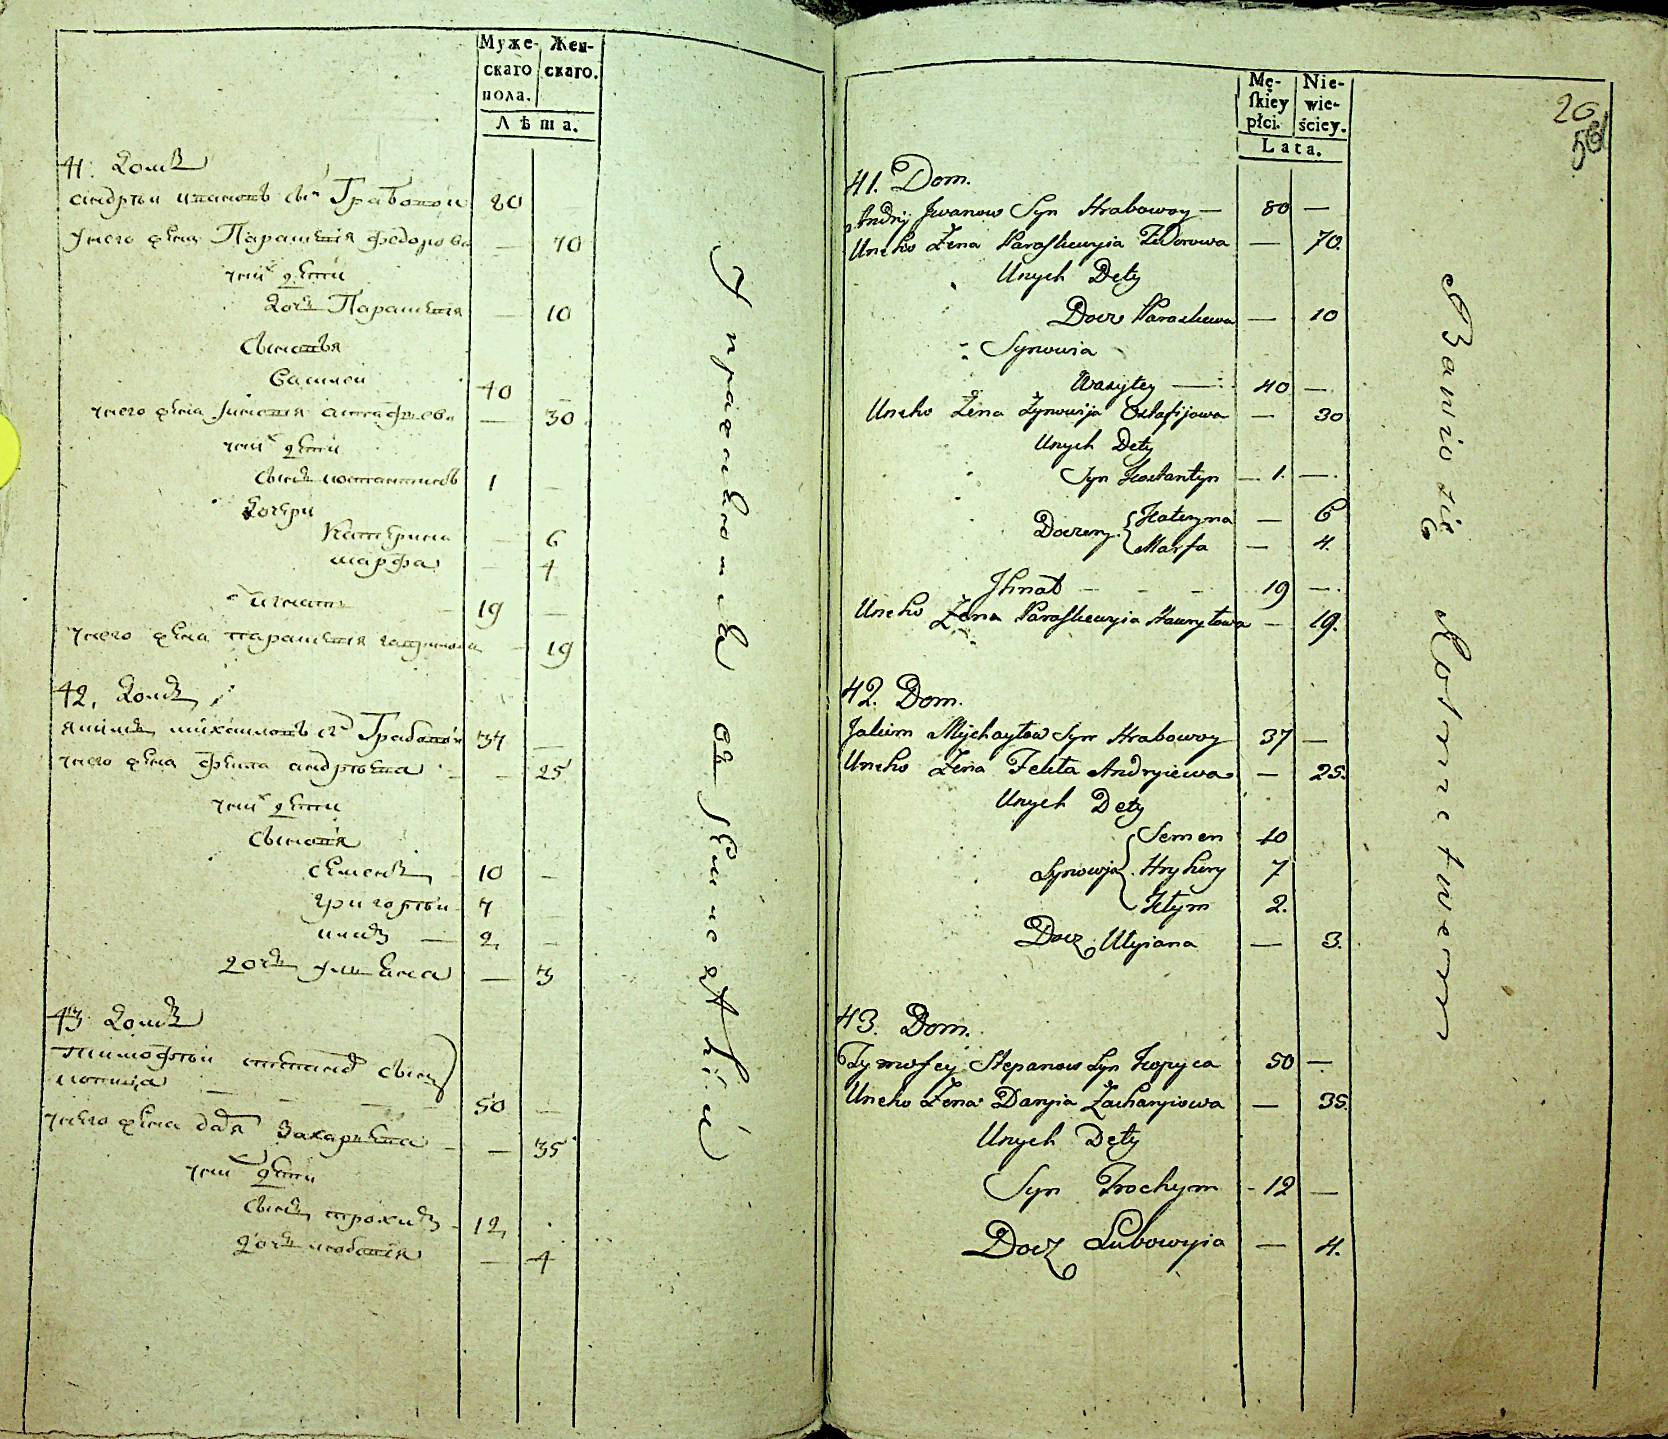 Муже-
скаго
пола.
Жен-
скаго.
Лѣта.
41: домъ
андрѣи ивановъ сы͏нъ Грабовои 80 —
унего жена Парашкевія федорова — 70
унихъ дѣти
дочь Парашкевія — 10
Сыновья
василеи 40
унего жена Зиновія — 30
унихъ дѣти
сынъ костантинъ 1 —
дочери
катерина — 6
марфа — 4
игнатъ 19 —
унего жена парашкевія гаврилова — 19
42, домъ
якимъ михаиловъ с. Грабовои 37 —
унего жена фекла андрѣева — 25
унихъ дѣти
сыновя
семенъ 10 —
григорѣи 7
климъ — 2, —
дочь улияна — 3
43 домъ
тимофѣи степановъ сынъ
копица 50 —
унего жена дарія захариева — 35
унихъ дѣти
сынъ трохимъ 12,
дочь любовія — 4
Упражняются въ земледѣліи
Mę-
skiey
płci.
Nie-
wie-
ściey.
Lata.
20
41. Dom.
Andrij Jwanow Syn Hrabowoy — 80 —
Uneho Żena Paraskewyia Fedorowa — 70.
Unych Dety
Docz Paraskewa — 10
Synowia
Wasyley — 40 —
Uneho Żena Zynowija Ostafijowa — 30
Unych Dety
Syn Kostantyn — 1. —
Doczery { Kateryna — 6
Marfa — 4.
Jhnat — 19 —
Uneho Żena Paraskewyia Hawryłowa — 19.
42. Dom.
Jakim Mychayłow Syn Hrabowoy 37 —
Uneho Żena Fekła Andryiewa — 25.
Unych Dety
Semen 10
Synowja { Hryhory 7
Kłym 2.
Docz Ulyiana — 3.
43. Dom.
Tymofey Stepanow Syn Kopyca 50 —
Uneho Żena Daryia Zacharyiowa — 35
Unych Dety
Syn Trochym - 12 —
Docz Lubowyia — 4.
Bawio się Rolnictwem